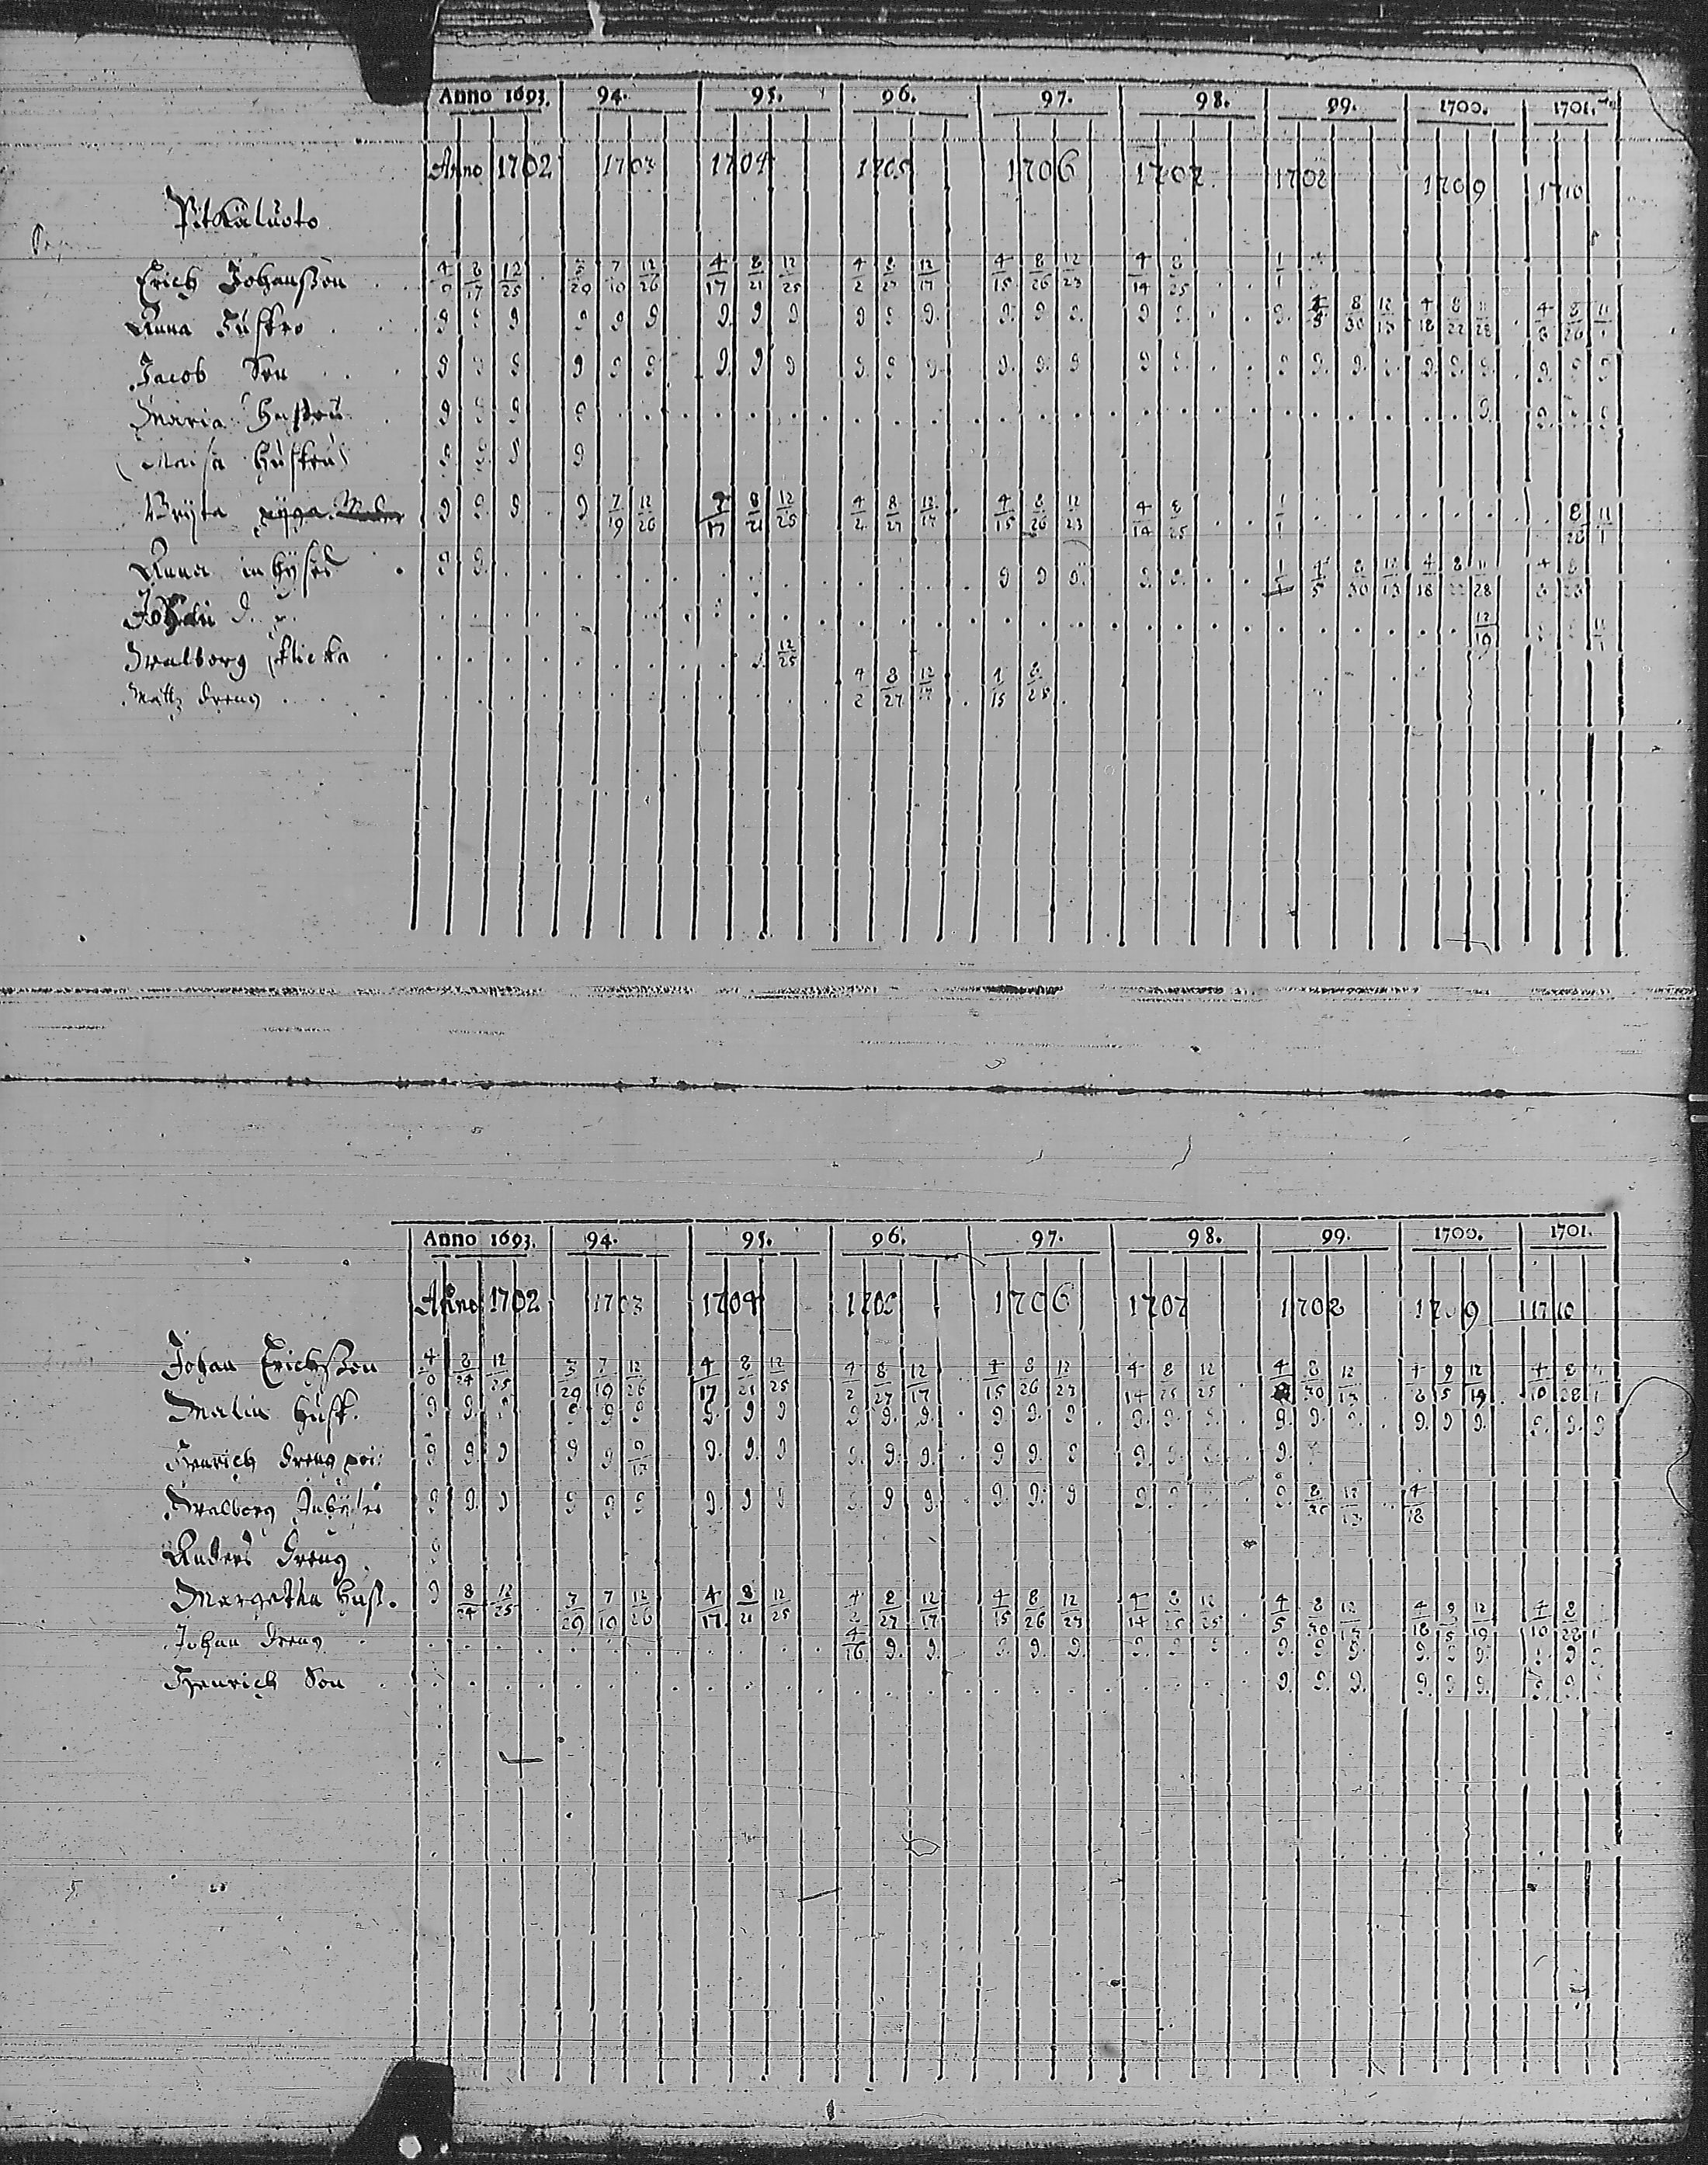 Anno 1693. 94. 95. 96. 97. 98. 99. 1700. 1701.
Anno 1702 1703 1704 1705 1706 1707 1708 1709 1710
Pitkäluoto
Erich Johansson 4/9 8/17 12/25 3/29 7/19 12/26 4/17 8/21 12/25 4/2 8/27 12/17 4/15 8/26 12/23 4/14 8/25 1/1
Anna Hustro 9 9 9 9 9 9 9. 9 9 9 9 9. 9. 9. 9. 9 9. 9. 4/5 8/30 12/13 4/18 8/22 11/28 4/8 8/28 11/1
Jacob Son 9 9 9 9 9 9 9. 9. 9 9. 9. 9. 9. 9. 9 9 9. 9 9. 9. 9. 9. 9. 9. 9. 9 9
Maria Hustru 9 9 9 9 9 9. 9
Maisa Hustru 9 9 9 9
Bryta 9 9. 9. 9 7/19 12/26 4/17 8/21 12/25 4/2 8/27 12/17 4/15 8/26 12/23 4/14 8/25 1/1 8/28 11/1
Anna inhyses 9 9. 9 9 9. 9. 9. 1/1 4/5 8/30 12/13 4/18 8/22 11/28 4/8 8/28
Johan 12/19 11/1
Walborg flicka 12/25
Matz dreng 4/2 8/27 12/17 4/15 8/25
Anno 1693. 94. 95. 96. 97. 98. 99. 1700. 1701.
Anno 1702 1703 1704 1705 1706 1707 1708 1709 1710
Johan Erichsson 4/9 8/24 12/25 3/29 7/19 12/26 4/17 8/21 12/25 4/2 8/27 12/17 4/15 8/26 12/23 4/14 8/25 12/25 4 8/30 12/13 4/8 9/5 12/19 4/10 8/28 11/1
Malin Hust. 9 9. 9 9 9 9 9. 9 9 9 9. 9. 9 9. 9 9. 9. 9. 9. 9. 9. 9. 9. 9. 9. 9. 9
Henrich dreng 9 9 9 9 9 9/17 9. 9. 9 9. 9. 9. 9 9 9 9. 9. 9. 9.
Walborg Inhyses 9 9. 9 9 9 9 9. 9 9 9 9. 9. 9. 9. 9 9. 9. 9. 8/30 12/13 4/18
Anders dreng 9
Margetha Hust. 9 8/24 12/25 3/29 7/19 12/26 4/17 8/21 12/25 4/2 8/27 12/17 4/15 8/26 12/23 4/14 8/25 12/25 4/5 8/30 12/13 4/18 9/5 12/19 4/10 8/28 1
Johan dreng 4/16 9. 9. 9. 9. 9. 9. 9 9 9. 9. 9. 9. 9. 9. 9. 9 9
Henrich Son 9. 9. 9. 9. 9. 9 9. 9.